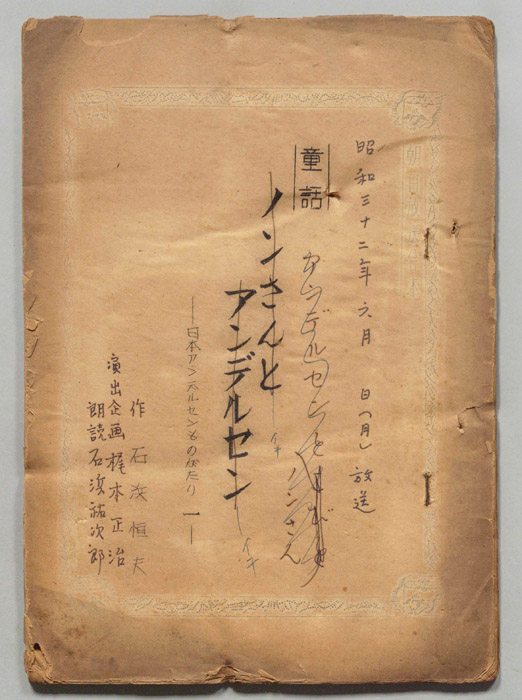 昭和三十二年六月　日(月)放送
童話
アンデルセンと
ノンさん
ノンさんと
イキ
アンデルセン
イキ
―日本アンデルセンものがたり 一―
作　石浜恒夫
演出企画 梶木正治
朗読 石濱祐次郎